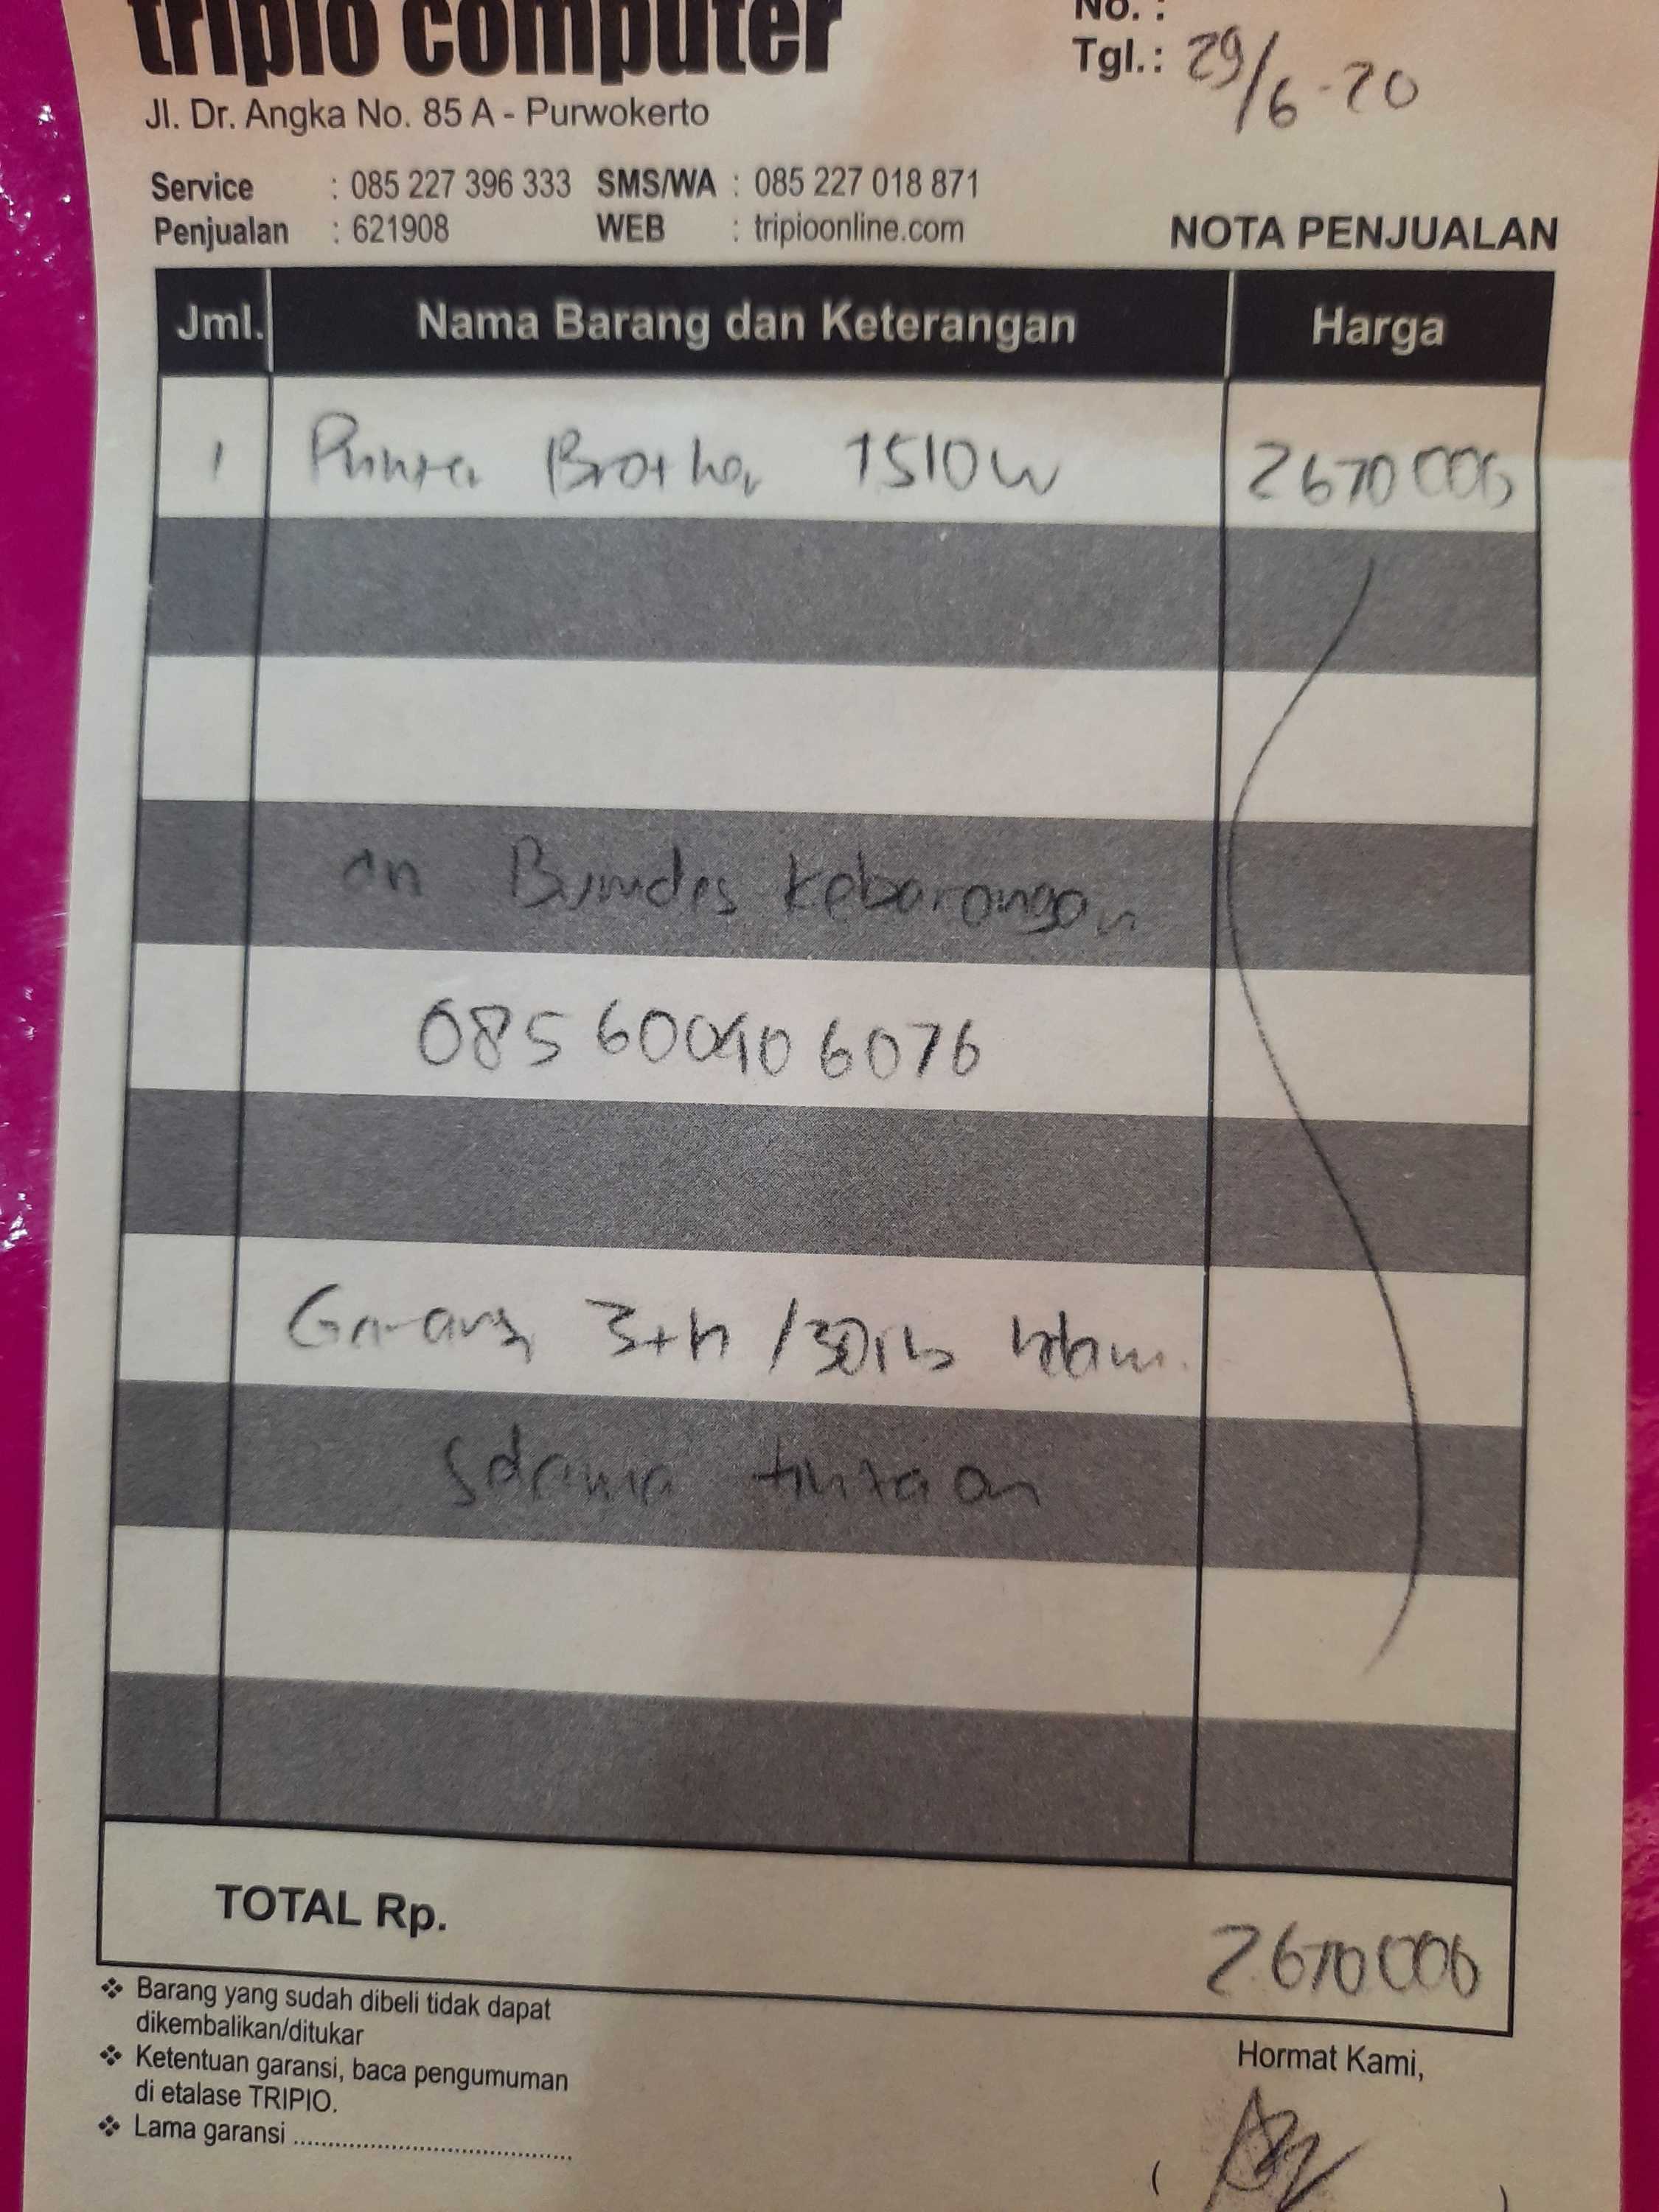 tripio computer
No. :
Tgl.: 29/6-20
Jl. Dr. Angka No. 85 A - Purwokerto
Service : 085 227 396 333 SMS/WA : 085 227 018 871
Penjualan : 621908 WEB : tripioonline.com
NOTA PENJUALAN
Jml. Nama Barang dan Keterangan Harga
1 Printer Brother T510W 2670000
an Bumdes Kebarongan
085 600406076
Garansi 3th /30rb
tintaan
TOTAL Rp. 2670000
❖ Barang yang sudah dibeli tidak dapat
dikembalikan/ditukar
❖ Ketentuan garansi, baca pengumuman
di etalase TRIPIO.
❖ Lama garansi ........................................
Hormat Kami,
( )